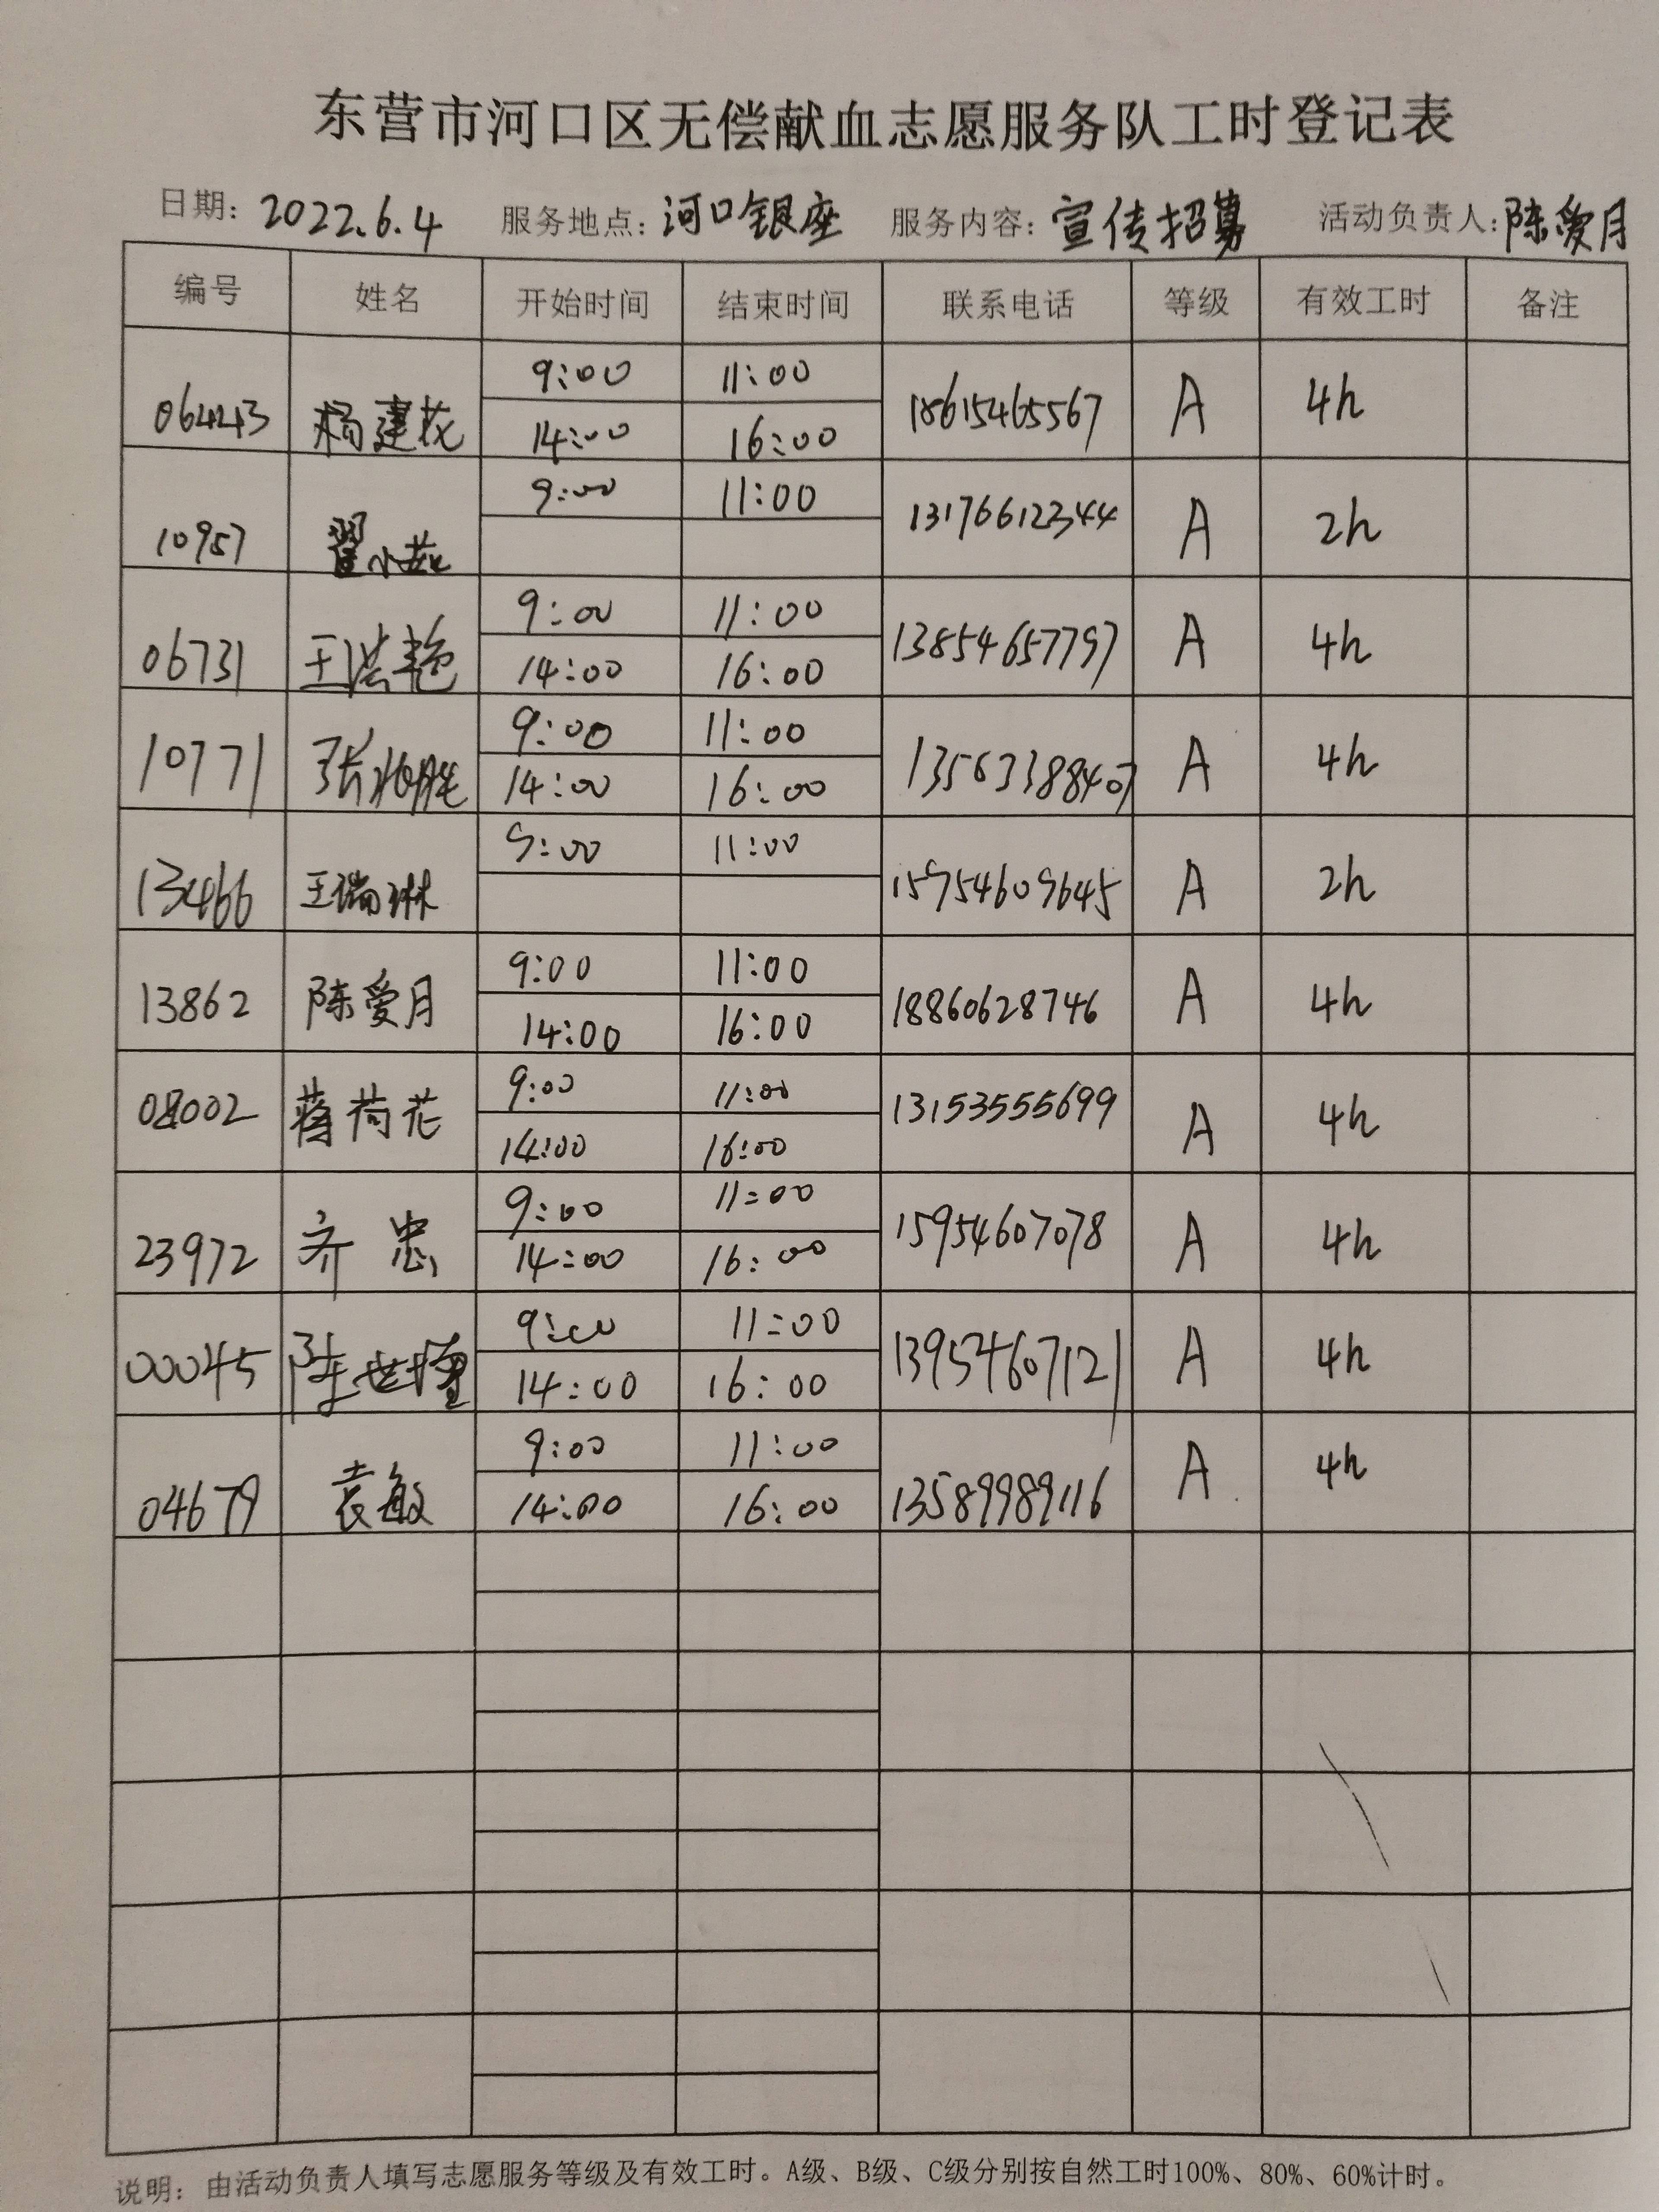 东营市河口区无偿献血志愿服务队工时登记表
日期: 2022.6.4 服务地点: 河口银座 服务内容: 宣传招募 活动负责人: 陈爱月
编号 姓名 开始时间 结束时间 联系电话 等级 有效工时 备注
9:00 11:00
杨建花 18615465567 A 4h
14:00 16:00
9:00 11:00
10957 翟小燕 13176612344 A 2h
9:00 11:00
06731 王洪艳 13854657797 A 4h
14:00 16:00
9:00 11:00
10771 张 13563388407 A 4h
14:00 16:00
9:00 11:00
13466 王瑞琳 15954609645 A 2h
9:00 11:00
13862 陈爱月 18860628746 A 4h
14:00 16:00
9:00 11:00
08002 蒋荷花 13153555699 A 4h
14:00 16:00
9:00 11:00
23972 齐忠 15954607078 A 4h
14:00 16:00
9:00 11:00
00045 陈世 13954607121 A 4h
14:00 16:00
9:00 11:00
04679 袁敏 13589989116 A 4h
14:00 16:00
说明: 由活动负责人填写志愿服务等级及有效工时。A级、B级、C级分别按自然工时100%、80%、60%计时。